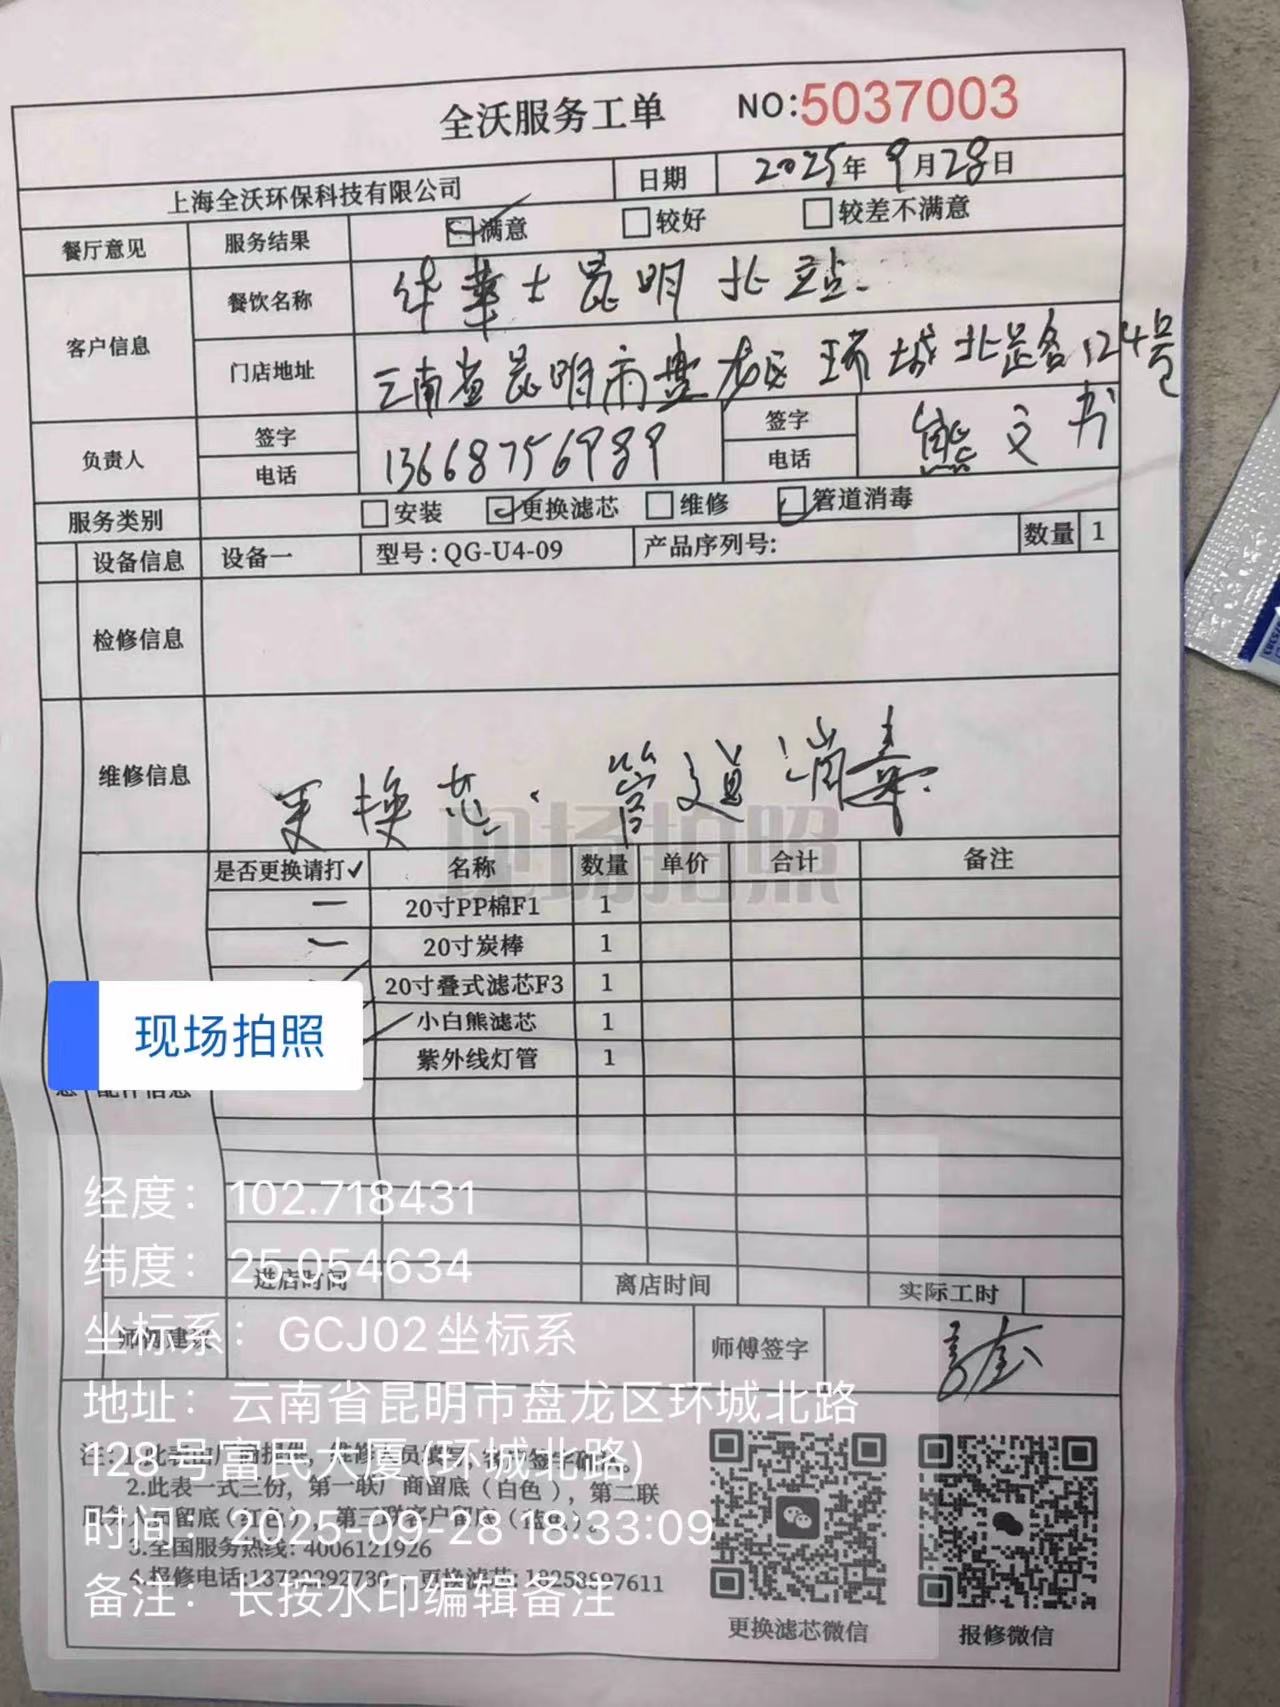 全沃服务工单 NO:5037003
上海全沃环保科技有限公司 日期 2025年 9月28日
餐厅意见 服务结果 满意 较好 较差不满意
客户信息 餐饮名称 华莱士昆明北站
门店地址 云南省昆明市盘龙区环城北路124号
负责人 签字 签字 熊文书
电话 13668756989 电话
服务类别 安装 更换滤芯 维修 管道消毒
设备信息 设备一 型号:QG-U4-09 产品序列号: 数量 1
检修信息
维修信息 更换芯.管道消毒.
现场拍照
是否更换请打✓ 名称 数量 单价 合计 备注
20寸PP棉F1 1
20寸炭棒 1
20寸叠式滤芯F3 1
小白熊滤芯 1
紫外线灯管 1
现场拍照
配件信息
经度：102.718431
纬度：25.054634
进店时间 离店时间 实际工时
坐标系：GCJ02坐标系
师傅签字
地址：云南省昆明市盘龙区环城北路
128号富民大厦(环城北路)
2.此表一式三份，第一联厂商留底（白色），第二联
时间：2025-09-28 18:33:09
3.全国服务热线: 4006121926
备注：长按水印编辑备注
更换滤芯微信 报修微信